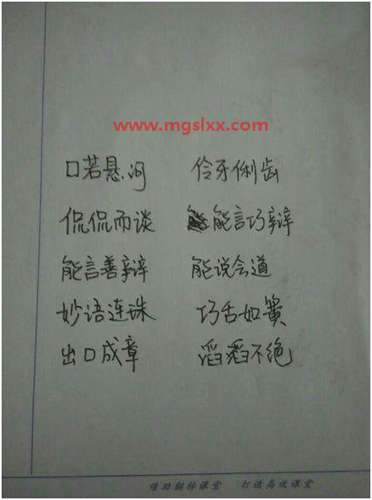 www.mgslxx.com
口若悬河 伶牙俐齿
侃侃而谈 能言巧辩
能言善辩 能说会道
妙语连珠 巧舌如簧
出口成章 滔滔不绝
增助翻转课堂 打造高效课堂